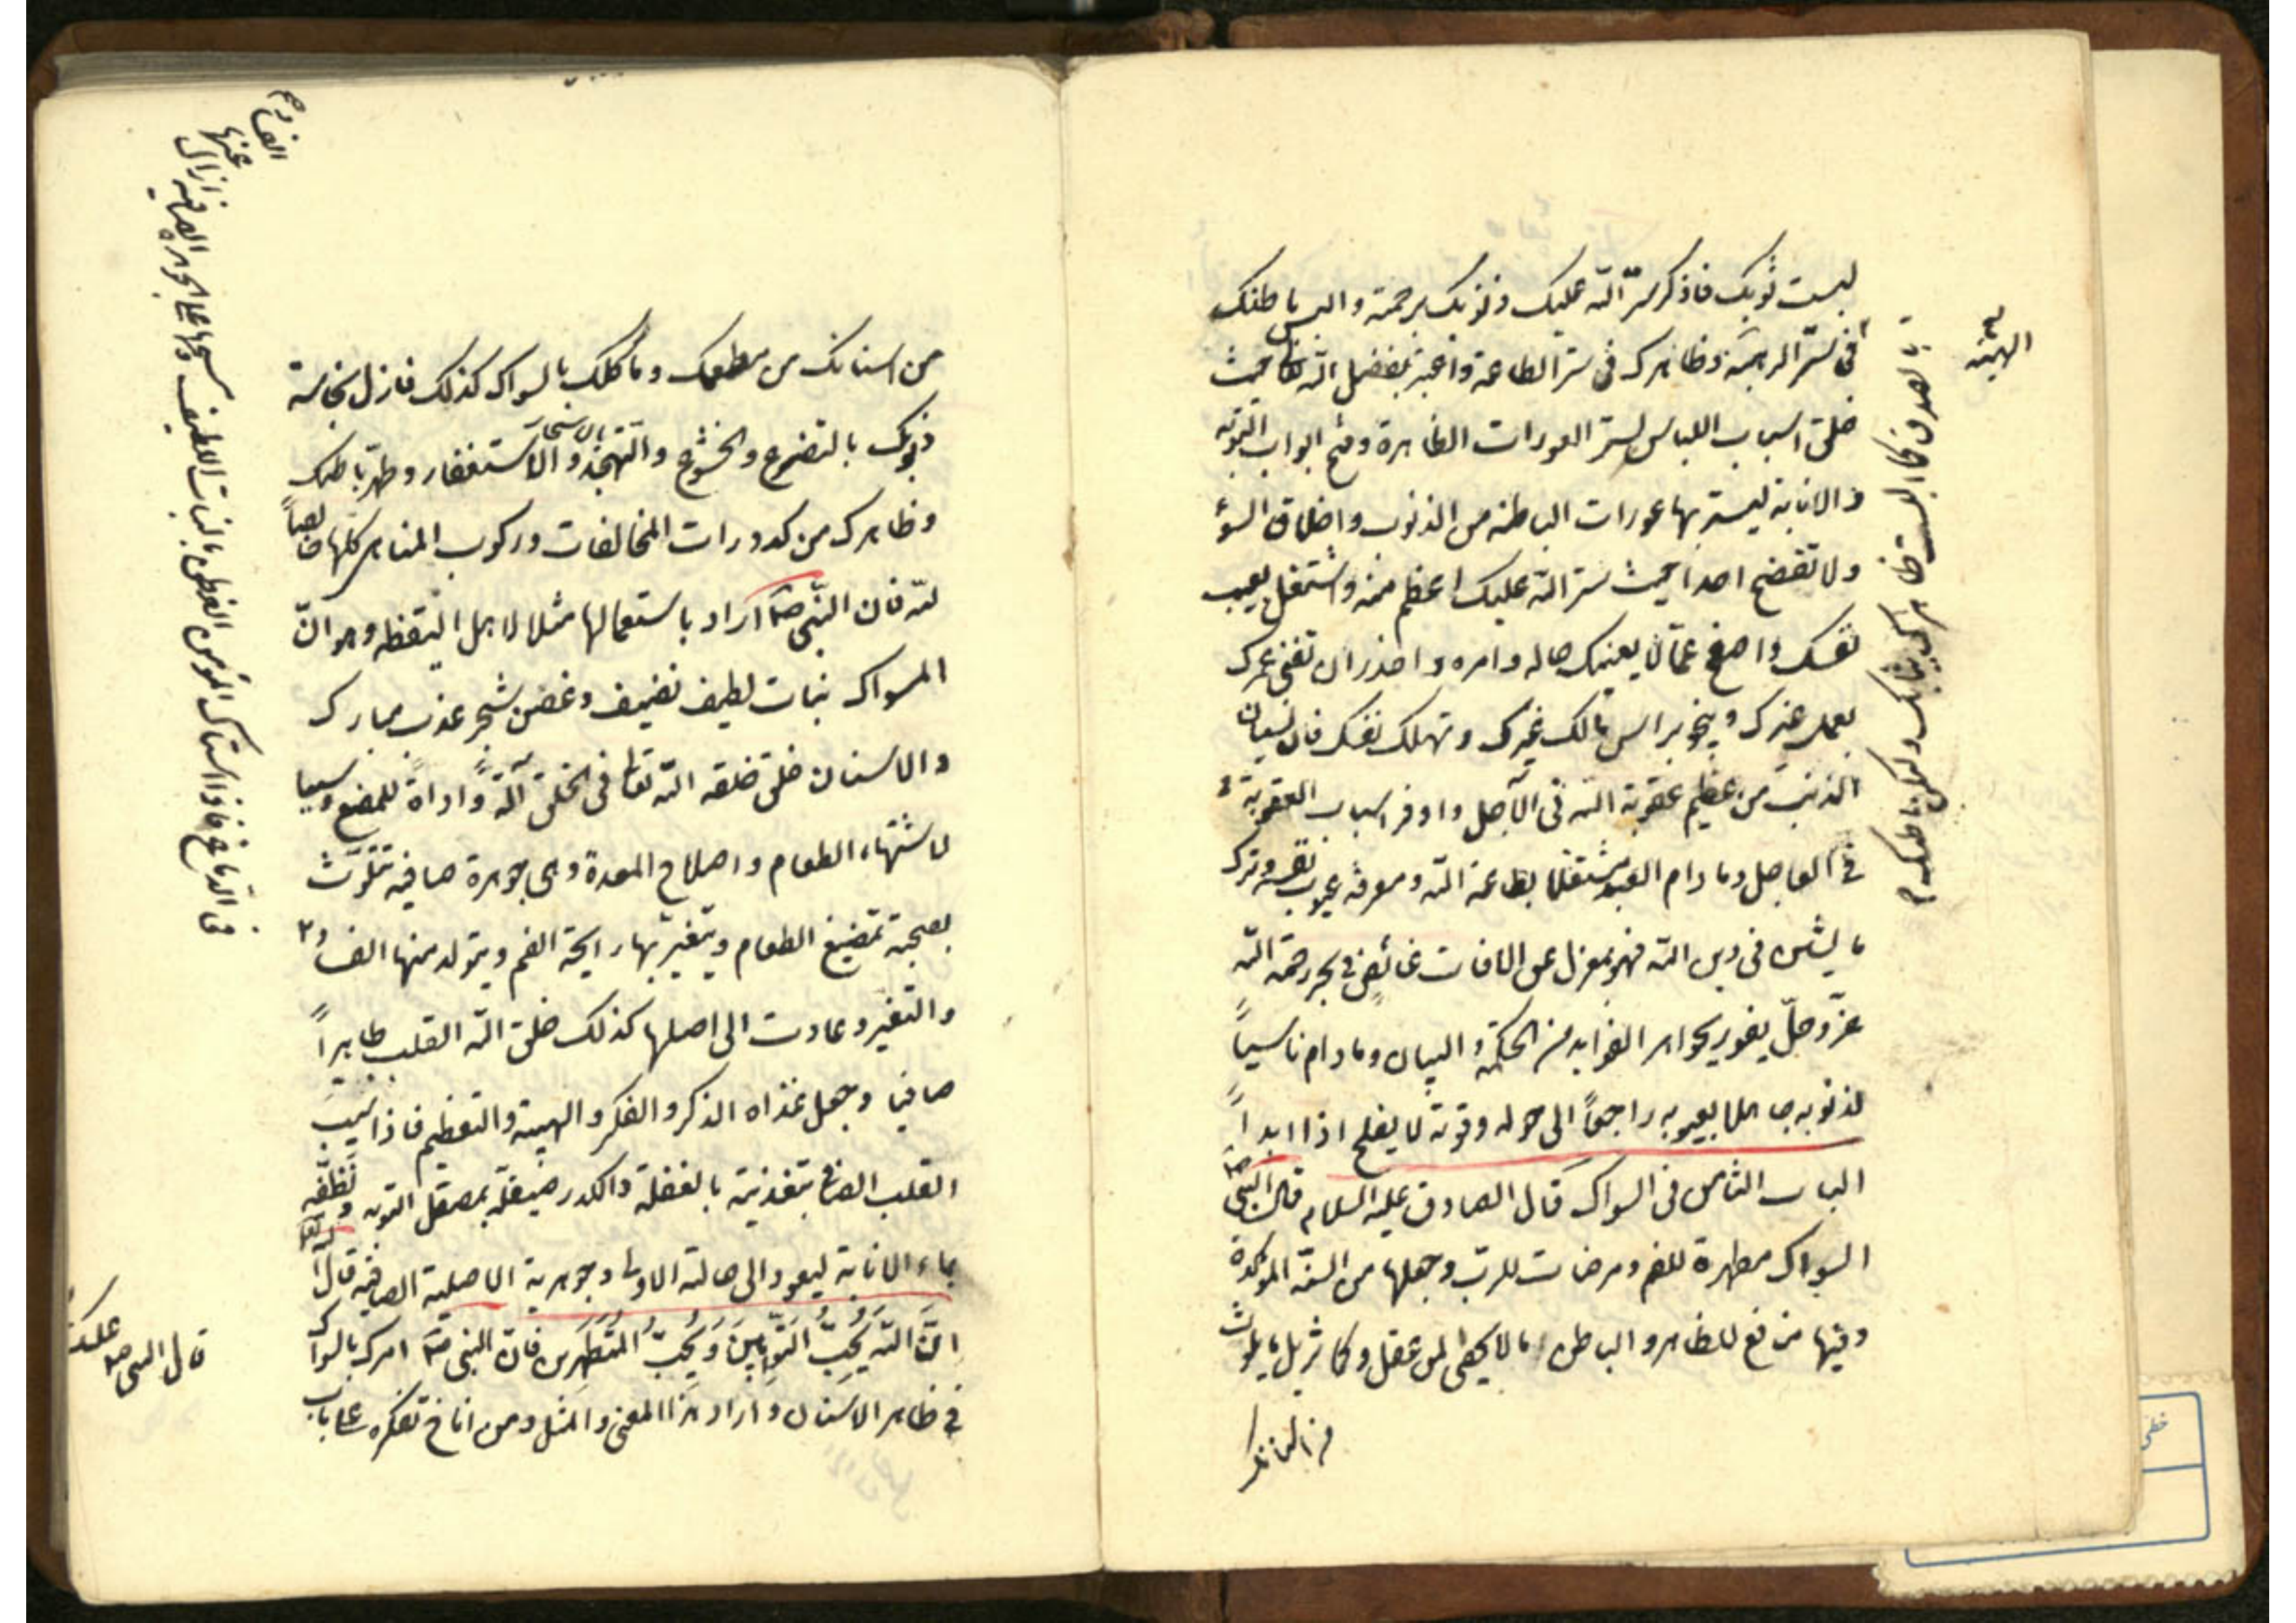 لبست ثوبك فاذكر ستر الله عليك ذنوبك برحمته والبس باطنك
فى ستر الرهبة وظاهرك فى ستر الطاعة واعتبر بفضل الله تعالى حيث
خلق اسباب اللباس لستر العورات الظاهرة وفتح ابواب التوبة
و الانابة ليستر بها عورات الباطنة من الذنوب واخلاق السوء
ولا تفضح احدا حيث ستر الله عليك اعظم منه واشتغل بعيب
نفسك واصفح عما لا يعنيك حاله وامره واحذر ان تفنى عمرك
بعمل غيرك ويتجر براس مالك غيرك وتهلك نفسك فان نسيان
الذنب من عظيم عقوبة الله فى الآجل واوفر اسباب العقوبة
فى العاجل وما دام العبد مشتغلا بطاعة الله ومعرفة عيوب نفسه وترك
ما يشين فى دين الله فهو بمعزل عن الافات غائص فى بحر رحمة الله
عزّ وجلّ يفوز بجواهر الفوايد من الحكمة والبيان وما دام ناسياً
لذنوبه جاهلا بعيوبه راجعاً الى حوله وقوته لا يفلح اذا ابداً
الباب الثامن فى السواك قال الصادق عليه السلام قال النبى ص
السواك مطهرة للفم ومرضات للرب وجعلها من السنة المؤكدة
وفيها منافع للظاهر والباطن ما لا يحصى لمن عقل وكما تزيل ما يلوث
الهيبة
بالصدق كما البست ظاهرك بثيابك وليكن باطنك
من اسنانك من مطعمك وماكلك بالسواك كذلك فازل نجاسة
ذنوبك بالتضرع والخشوع والتهجد والاستغفار بالاسحار وطهر باطنك
وظاهرك من كدورات المخالفات وركوب المناهى كلها خالصاً
لله فان النبى ص اراد باستعمالها مثلا لاهل اليقظه وهو انّ
المسواك نبات لطيف نضيف وغصن شجر عذب مبارك
والاسنان خلق خلقه الله تعالى فى الخلق آلةً واداةً للمضغ وسببا
لاشتهاء الطعام واصلاح المعدة وهى جوهرة صافيه تتلوّث
بصحبة تمضيغ الطعام ويتغير بها رايحة الفم ويتولد منها الفساد
والتغير وعادت الى اصلها كذلك خلق الله القلب طاهراً
صافيا وجعل غذاه الذكر والفكر والهيبة والتعظيم فاذا شيب
القلب الصافى بتغذيته بالغفلة والكدر صيقلة بمصقل التوبه ونظفه
بماء الانابة ليعود الى حالته الاولى وجوهرية الاصلية الصافيه قال الله تعالى
انّ الله يُحِبُّ التَّوَّابِينَ وَيُحِبُّ الْمُتَطَهِّرين فان النبى ص امرك بالسواك
فى ظاهر الاسنان واراد هذا المعنى والمثل ومن اناخ تفكره على باب
قال النبى ص عليكم
فى الدماغ فاذا استاك المؤمن الفطن بالنبات اللطيف ومسحها على الجوهرة الصافيه ازال
عنها
الفساد